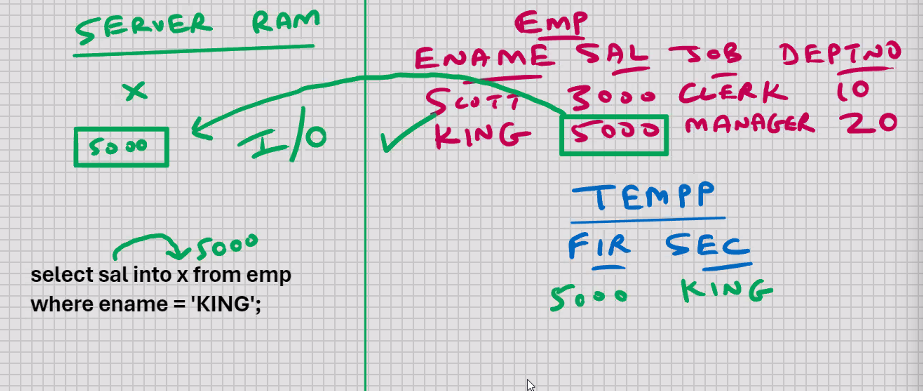 SERVER RAM
X
5000
I/O
5000
select sal into x from emp
where ename = 'KING';
Emp
ENAME SAL JOB DEPTNO
SCOTT 3000 CLERK 10
KING 5000 MANAGER 20
TEMPP
FIR SEC
5000 KING